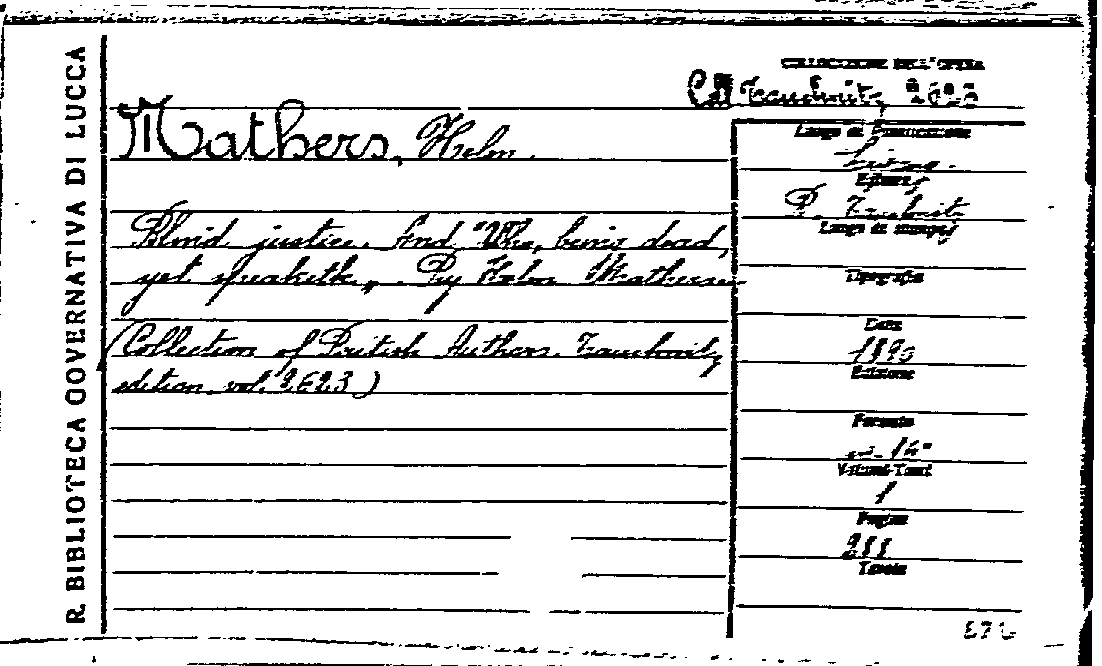 R. BIBLIOTECA GOVERNATIVA DI LUCCA
COLLOCAZIONE DELL'OPERA
Coll Tauchnitz 2623
Mathers, Helen.
Blind justice. And "Who, being dead,
yet speaketh„. By Helen Mathers
(Collection of British Authors. Tauchnitz
edition. vol. 2623)
Luogo di Pubblicazione
Editore
B. Tauchnitz
Luogo di stampa
Tipografia
Data
1890
Edizione
Formato
in-16°
Volumi-Tomi
1
Pagine
Tavole